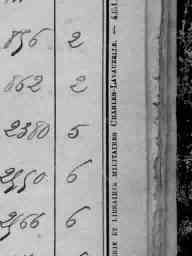 896 2
862 2
2380 5
2950 6
2966 6
RIE ET LIBRAIRIE MILITAIRES CHARLES-LAVAUZELLE. —